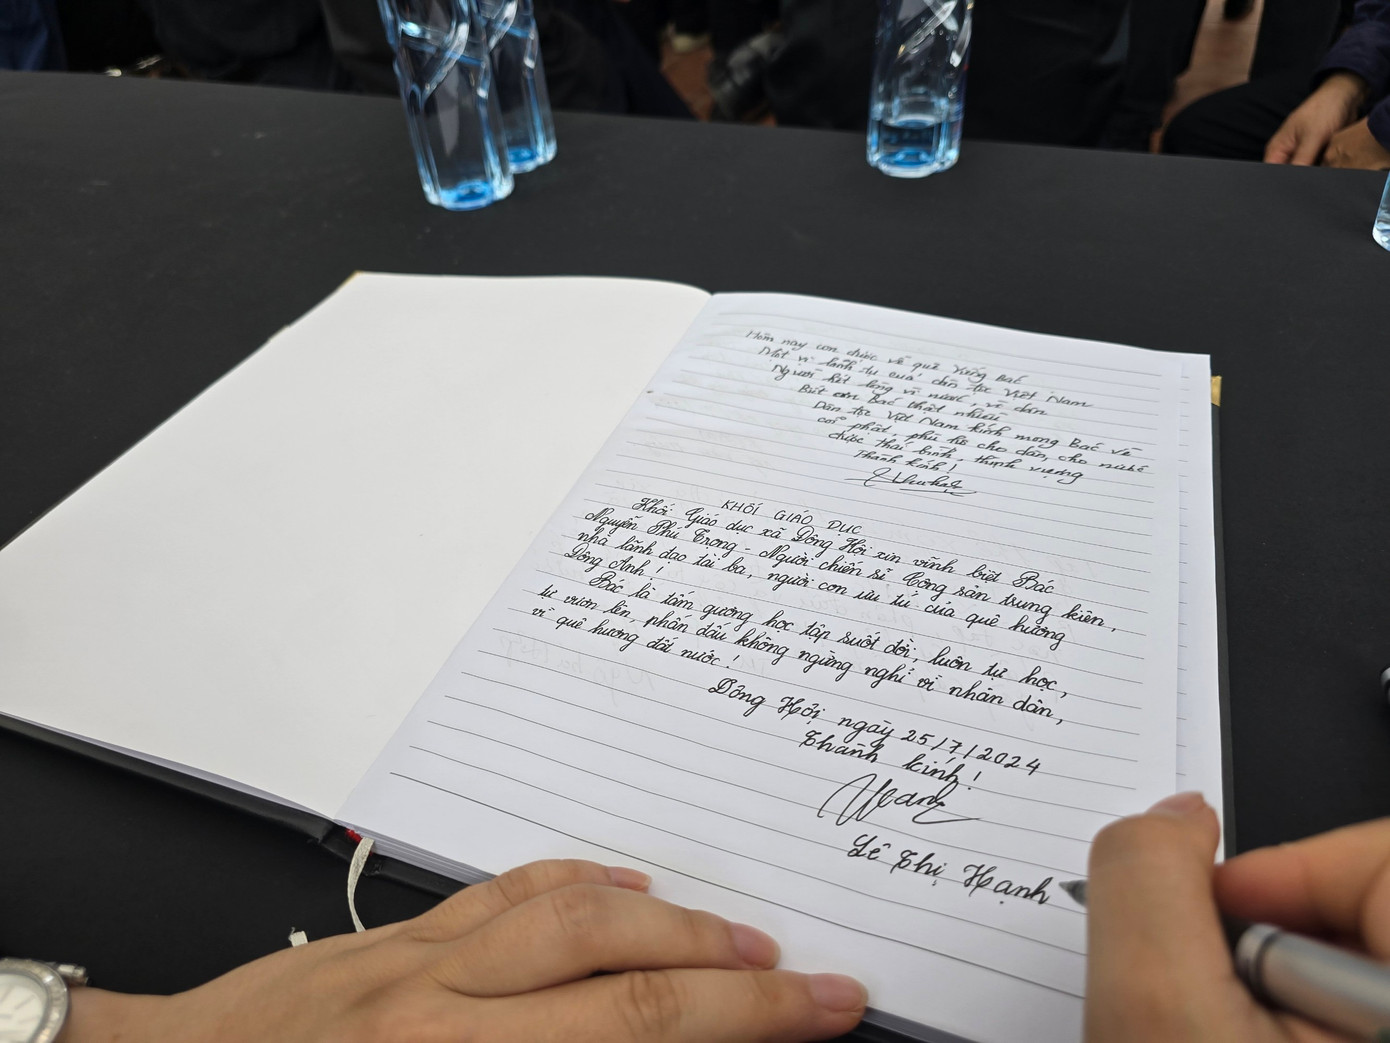 Hôm nay con được về quê viếng Bác
Một vị lãnh tụ của dân tộc Việt Nam
Người hết lòng vì nước, vì dân
Biết ơn Bác thật nhiều
Dân tộc Việt Nam kính mong Bác về
cõi phật, phù hộ cho dân, cho nước
được thái bình, thịnh vượng
Thành kính!
KHỐI GIÁO DỤC
Khối Giáo dục xã Đông Hội xin vĩnh biệt Bác
Nguyễn Phú Trọng - Người chiến sĩ Cộng sản trung kiên,
nhà lãnh đạo tài ba, người con ưu tú của quê hương
Đông Anh!
Bác là tấm gương học tập suốt đời, luôn tự học,
tự vươn lên, phấn đấu không ngừng nghỉ vì nhân dân,
vì quê hương đất nước!
Đông Hội ngày 25/7/2024
Thành kính!
Lê Thị Hạnh